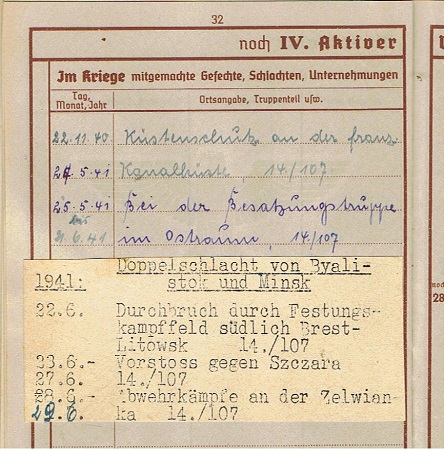 32
noch IV. Aktiver
Im Kriege mitgemachte Gefechte, Schlachten, Unternehmungen
Tag, Monat, Jahr
Ortsangabe, Truppenteil usw.
22.11.40 Küstenschutz an der franz
24.5.41 Kanalküste, 14./107
25.5.41 Bei der Besatzungstruppe
bis
21.6.41 im Ostraum, 14/107
Doppelschlacht von Byali-
1941: stok und Minsk
22.6. Durchbruch durch Festungs-
kampffeld südlich Brest-
Litowsk 14./107
23.6.- Vorstoss gegen Szczara
27.6. 14./107
28.6.- Abwehrkämpfe an der Zelwian-
29.6. ka 14./107
28